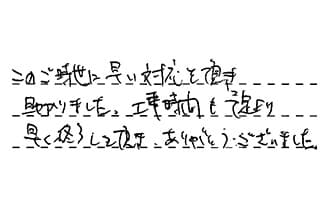 このご時世に早い対応を頂き
助かりました、工事時間も予定より
早く終了して頂き、ありがとうございました。